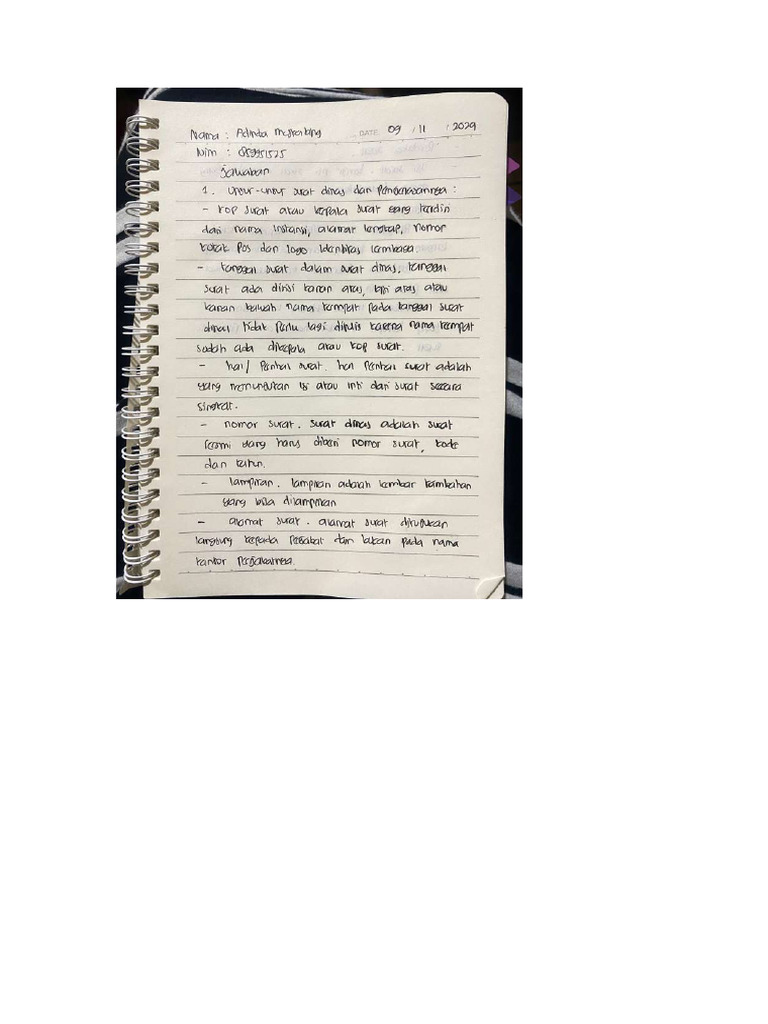 Nama : Adinda DATE 09 / 11 / 2024
Nim :
Jawaban
1. Unsur-unsur surat dinas dan penjelasannya :
- Kop surat atau kepala surat yang terdiri
dari nama instansi, alamat lengkap, nomor
kotak pos dan logo identitas lembaga.
- tanggal surat dalam surat dinas, tanggal
surat ada disisi kanan atas, kiri atas atau
kanan bawah nama tempat pada tanggal surat
dinas tidak perlu lagi ditulis karena nama tempat
sudah ada dikepala atau kop surat.
- hal / Perihal surat. hal perihal surat adalah
yang menunjukan isi atau inti dari surat secara
singkat.
- nomor surat. surat dinas adalah surat
resmi yang harus diberi nomor surat, kode
dan tahun.
- lampiran. lampiran adalah lembar tambahan
yang bisa dilampirkan
- alamat surat. alamat surat ditujukan
langsung kepada pejabat dan bukan pada nama
kantor pejabatnya.